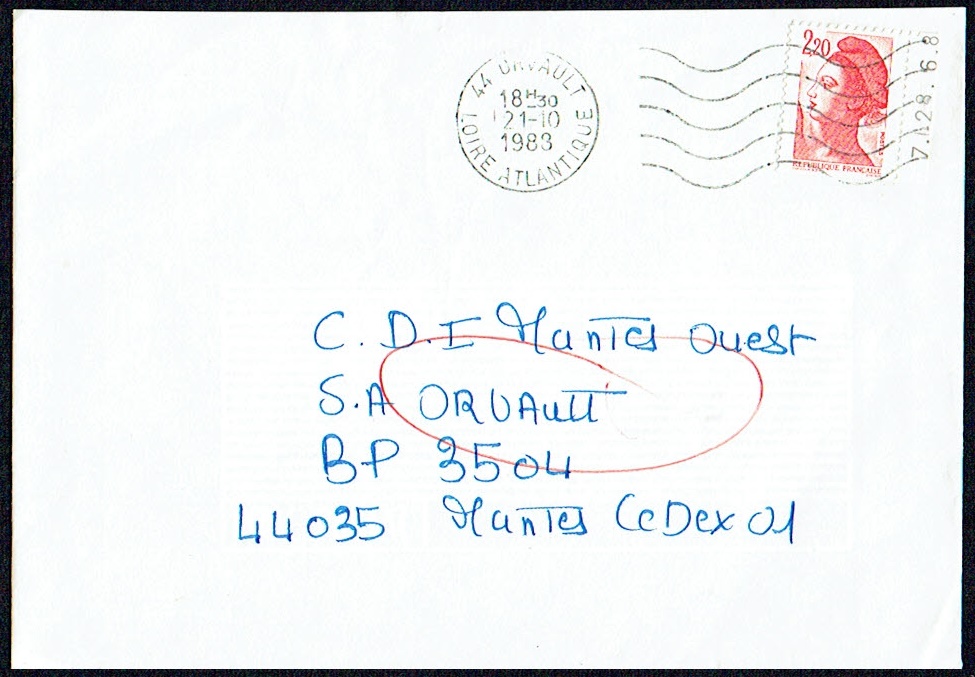 44 ORVAULT
18H30
21-10
1988
LOIRE ATLANTIQUE
2,20
REPUBLIQUE FRANCAISE
7.1.28.6.8
C. D. I Nantes Ouest
S.A ORVAult
BP 3504
44035 Nantes CeDex 01